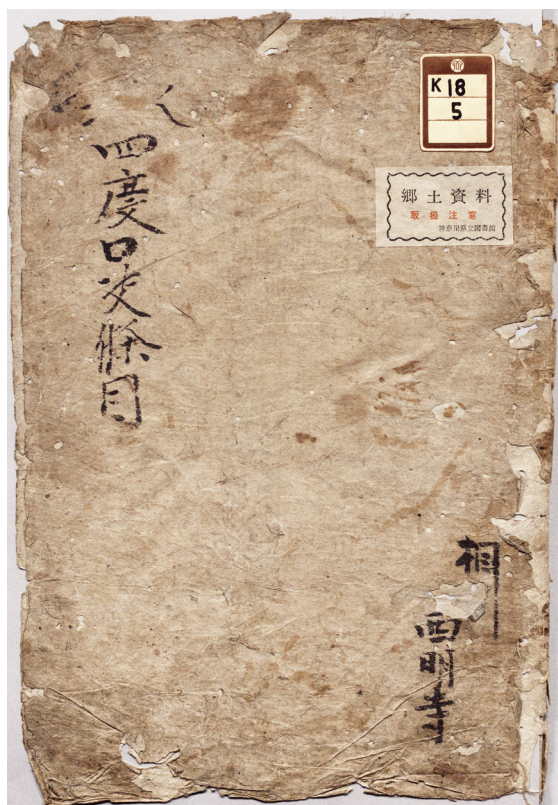 K 18
5
郷土資料
取扱注意
神奈川県立図書館
四度口决條目
相州
西明寺